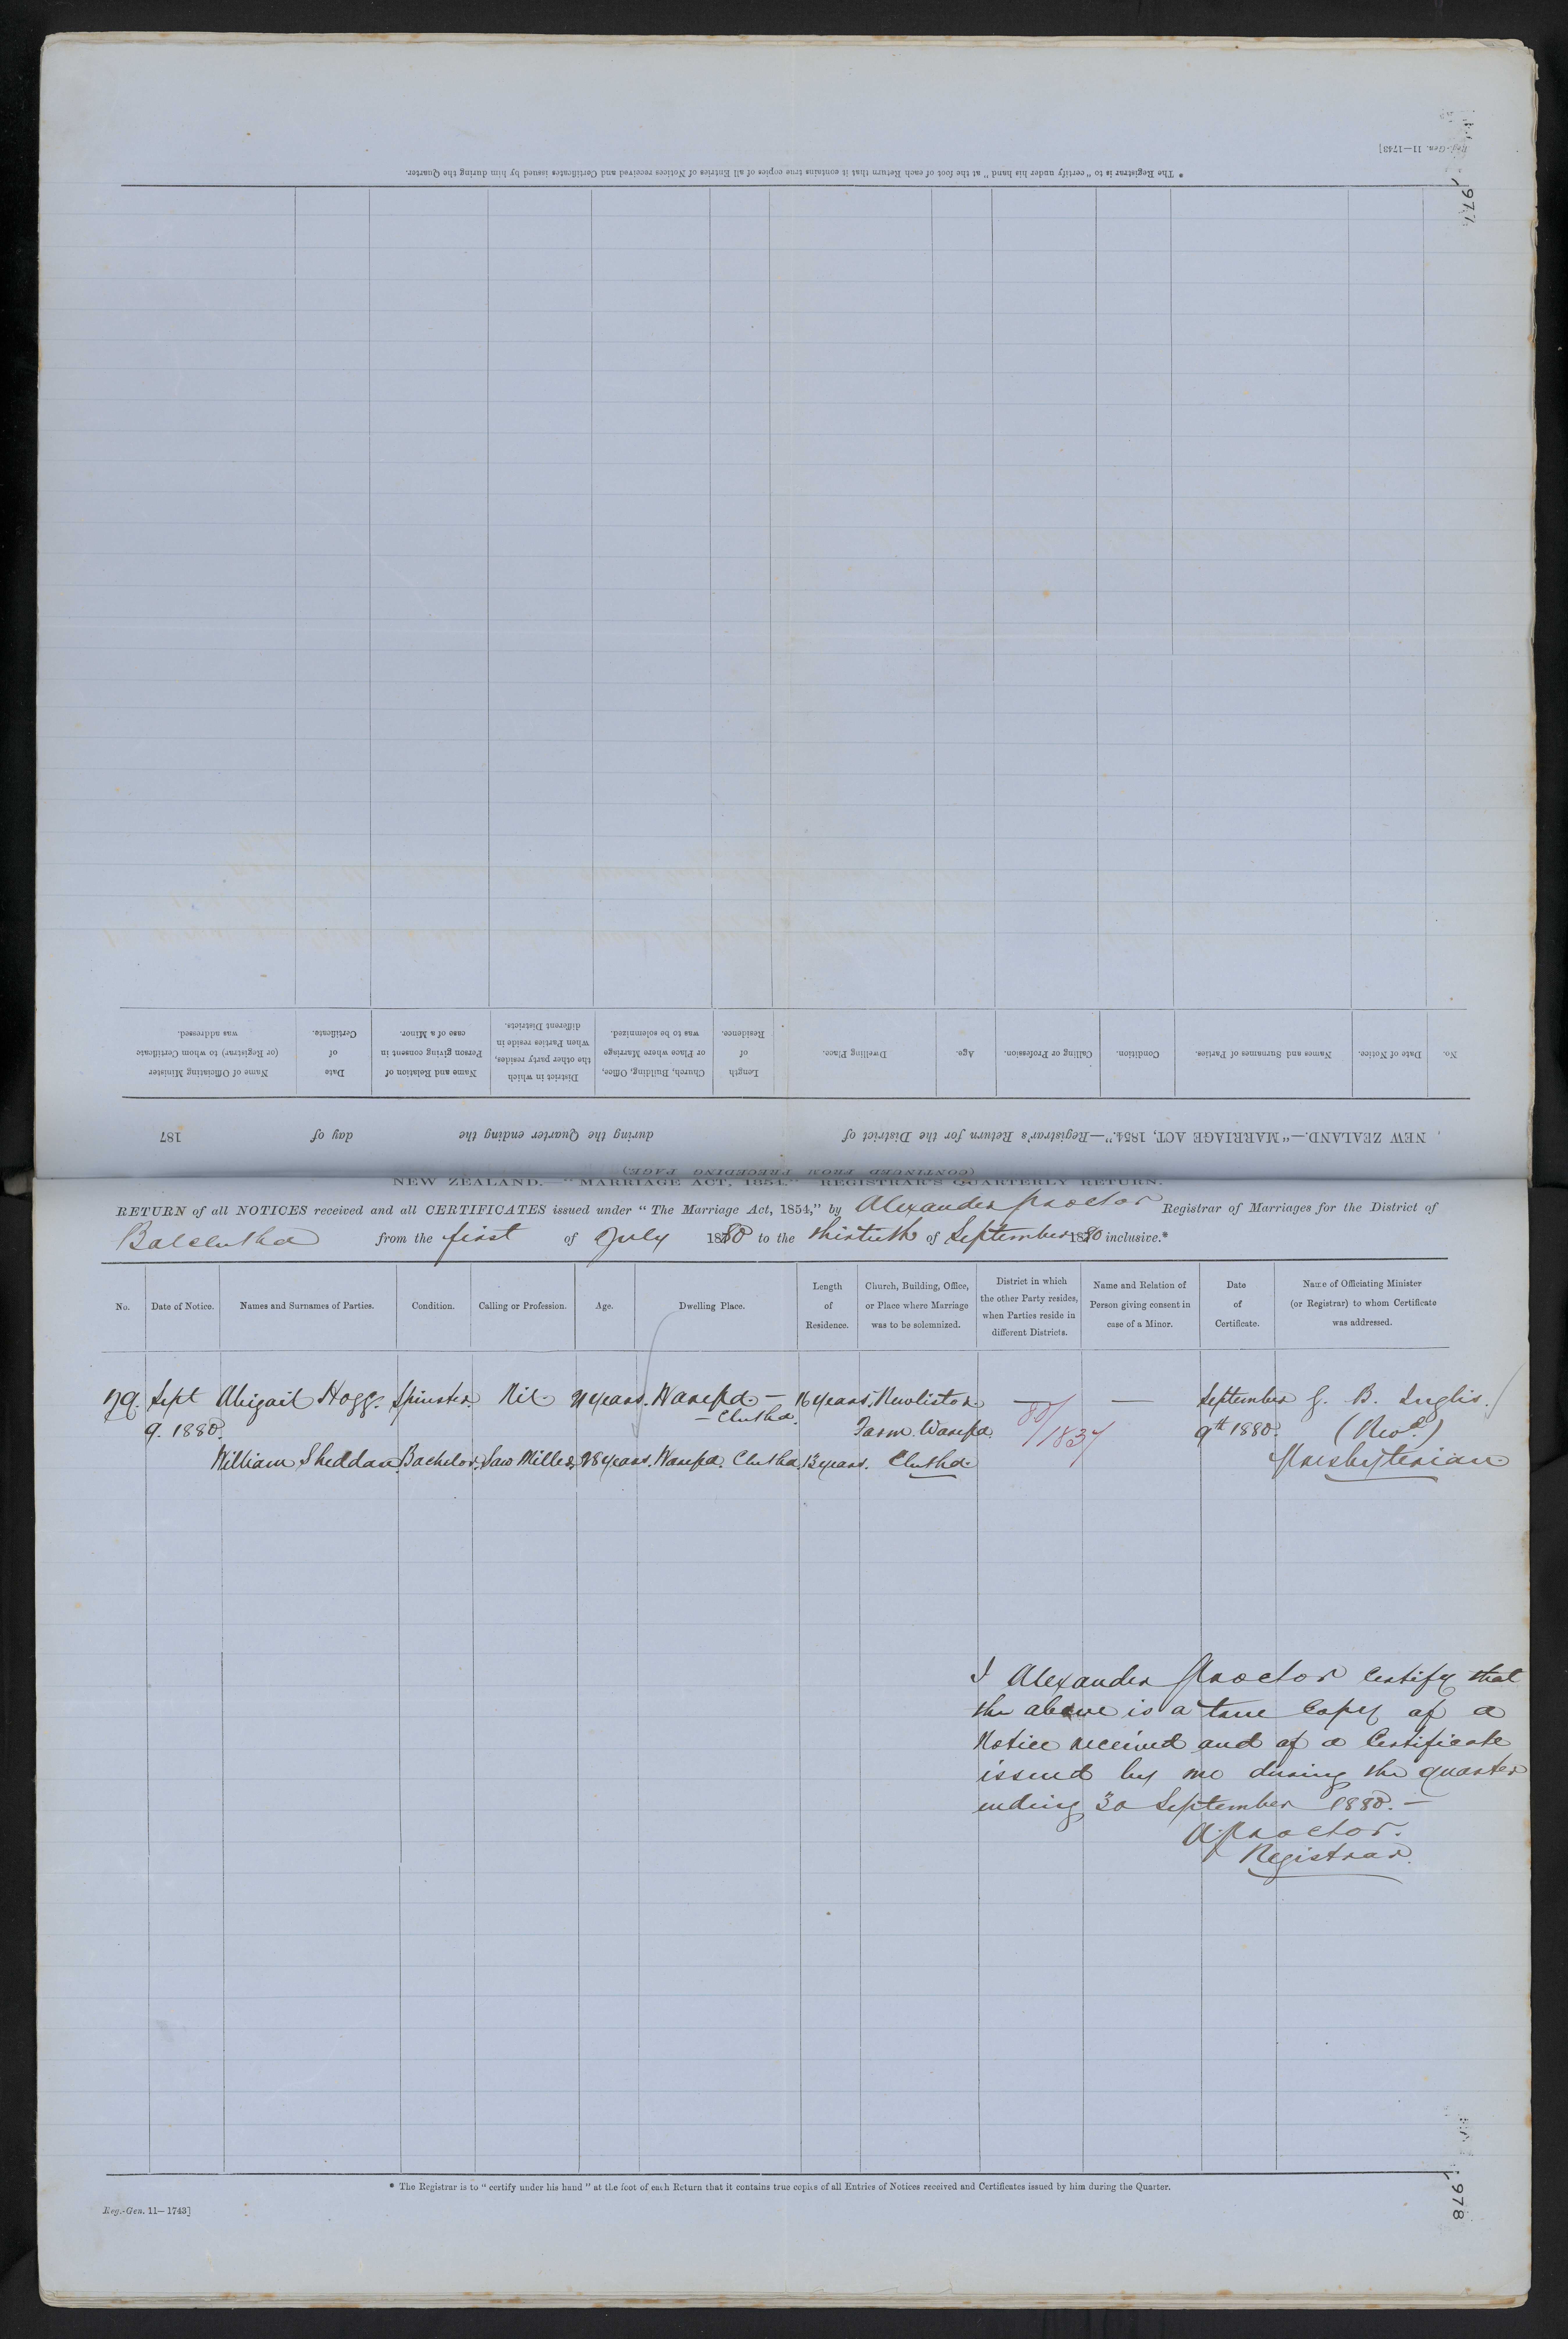 Reg.-Gen. 11—1743]
197
* The Registrar is to "certify under his hand" at the foot of each Return that it contains true copies of all Entries of Notices received and Certificates issued by him during the Quarter.
No.
Date of Notice.
Names and Surnames of Parties.
Condition.
Calling or Profession.
Age.
Dwelling Place.
Length
of
Residence.
Church, Building, Office,
or Place where Marriage
was to be solemnized.
District in which
the other party resides,
when Parties reside in
different Districts.
Name and Relation of
Person giving consent in
case of a Minor.
Date
of
Certificate.
Name of Officiating Minister
(or Registrar) to whom Certificate
was addressed.
NEW ZEALAND.—"MARRIAGE ACT, 1854."—Registrar's Return for the District of during the Quarter ending the day of 187
(CONTINUED FROM PRECEDING PAGE)
NEW ZEALAND.—"MARRIAGE ACT, 1854."—REGISTRAR'S QUARTERLY RETURN.
RETURN of all NOTICES received and all CERTIFICATES issued under "The Marriage Act, 1854," by Alexander Proctor Registrar of Marriages for the District of
Balclutha from the first of July 1880 to the thirtieth of September 1880 inclusive.*
No.
Date of Notice.
Names and Surnames of Parties.
Condition.
Calling or Profession.
Age.
Dwelling Place.
Length
of
Residence.
Church, Building, Office,
or Place where Marriage
was to be solemnized.
District in which
the other Party resides,
when Parties reside in
different Districts.
Name and Relation of
Person giving consent in
case of a Minor.
Date
of
Certificate.
Name of Officiating Minister
(or Registrar) to whom Certificate
was addressed.
Sept Abigail Hogg. Spinster. Nil 21 years. Warepa — 16 years. Newliston — — September B. Inglis.
— Clutha.
9. 1880. Farm. Warepa. 80/1837 9th 1880. (Revd.)
William Sheddan. Bachelor. Saw Miller. 28 years. Warepa. Clutha. 13 years. Clutha. Presbyterian
I Alexander Proctor certify that
the above is a true Copy of a
Notice received and of a Certificate
issued by me during the quarter
ending 30 September 1880. —
A Proctor.
Registrar.
* The Registrar is to "certify under his hand" at the foot of each Return that it contains true copies of all Entries of Notices received and Certificates issued by him during the Quarter.
Reg.-Gen. 11—1743]
1978